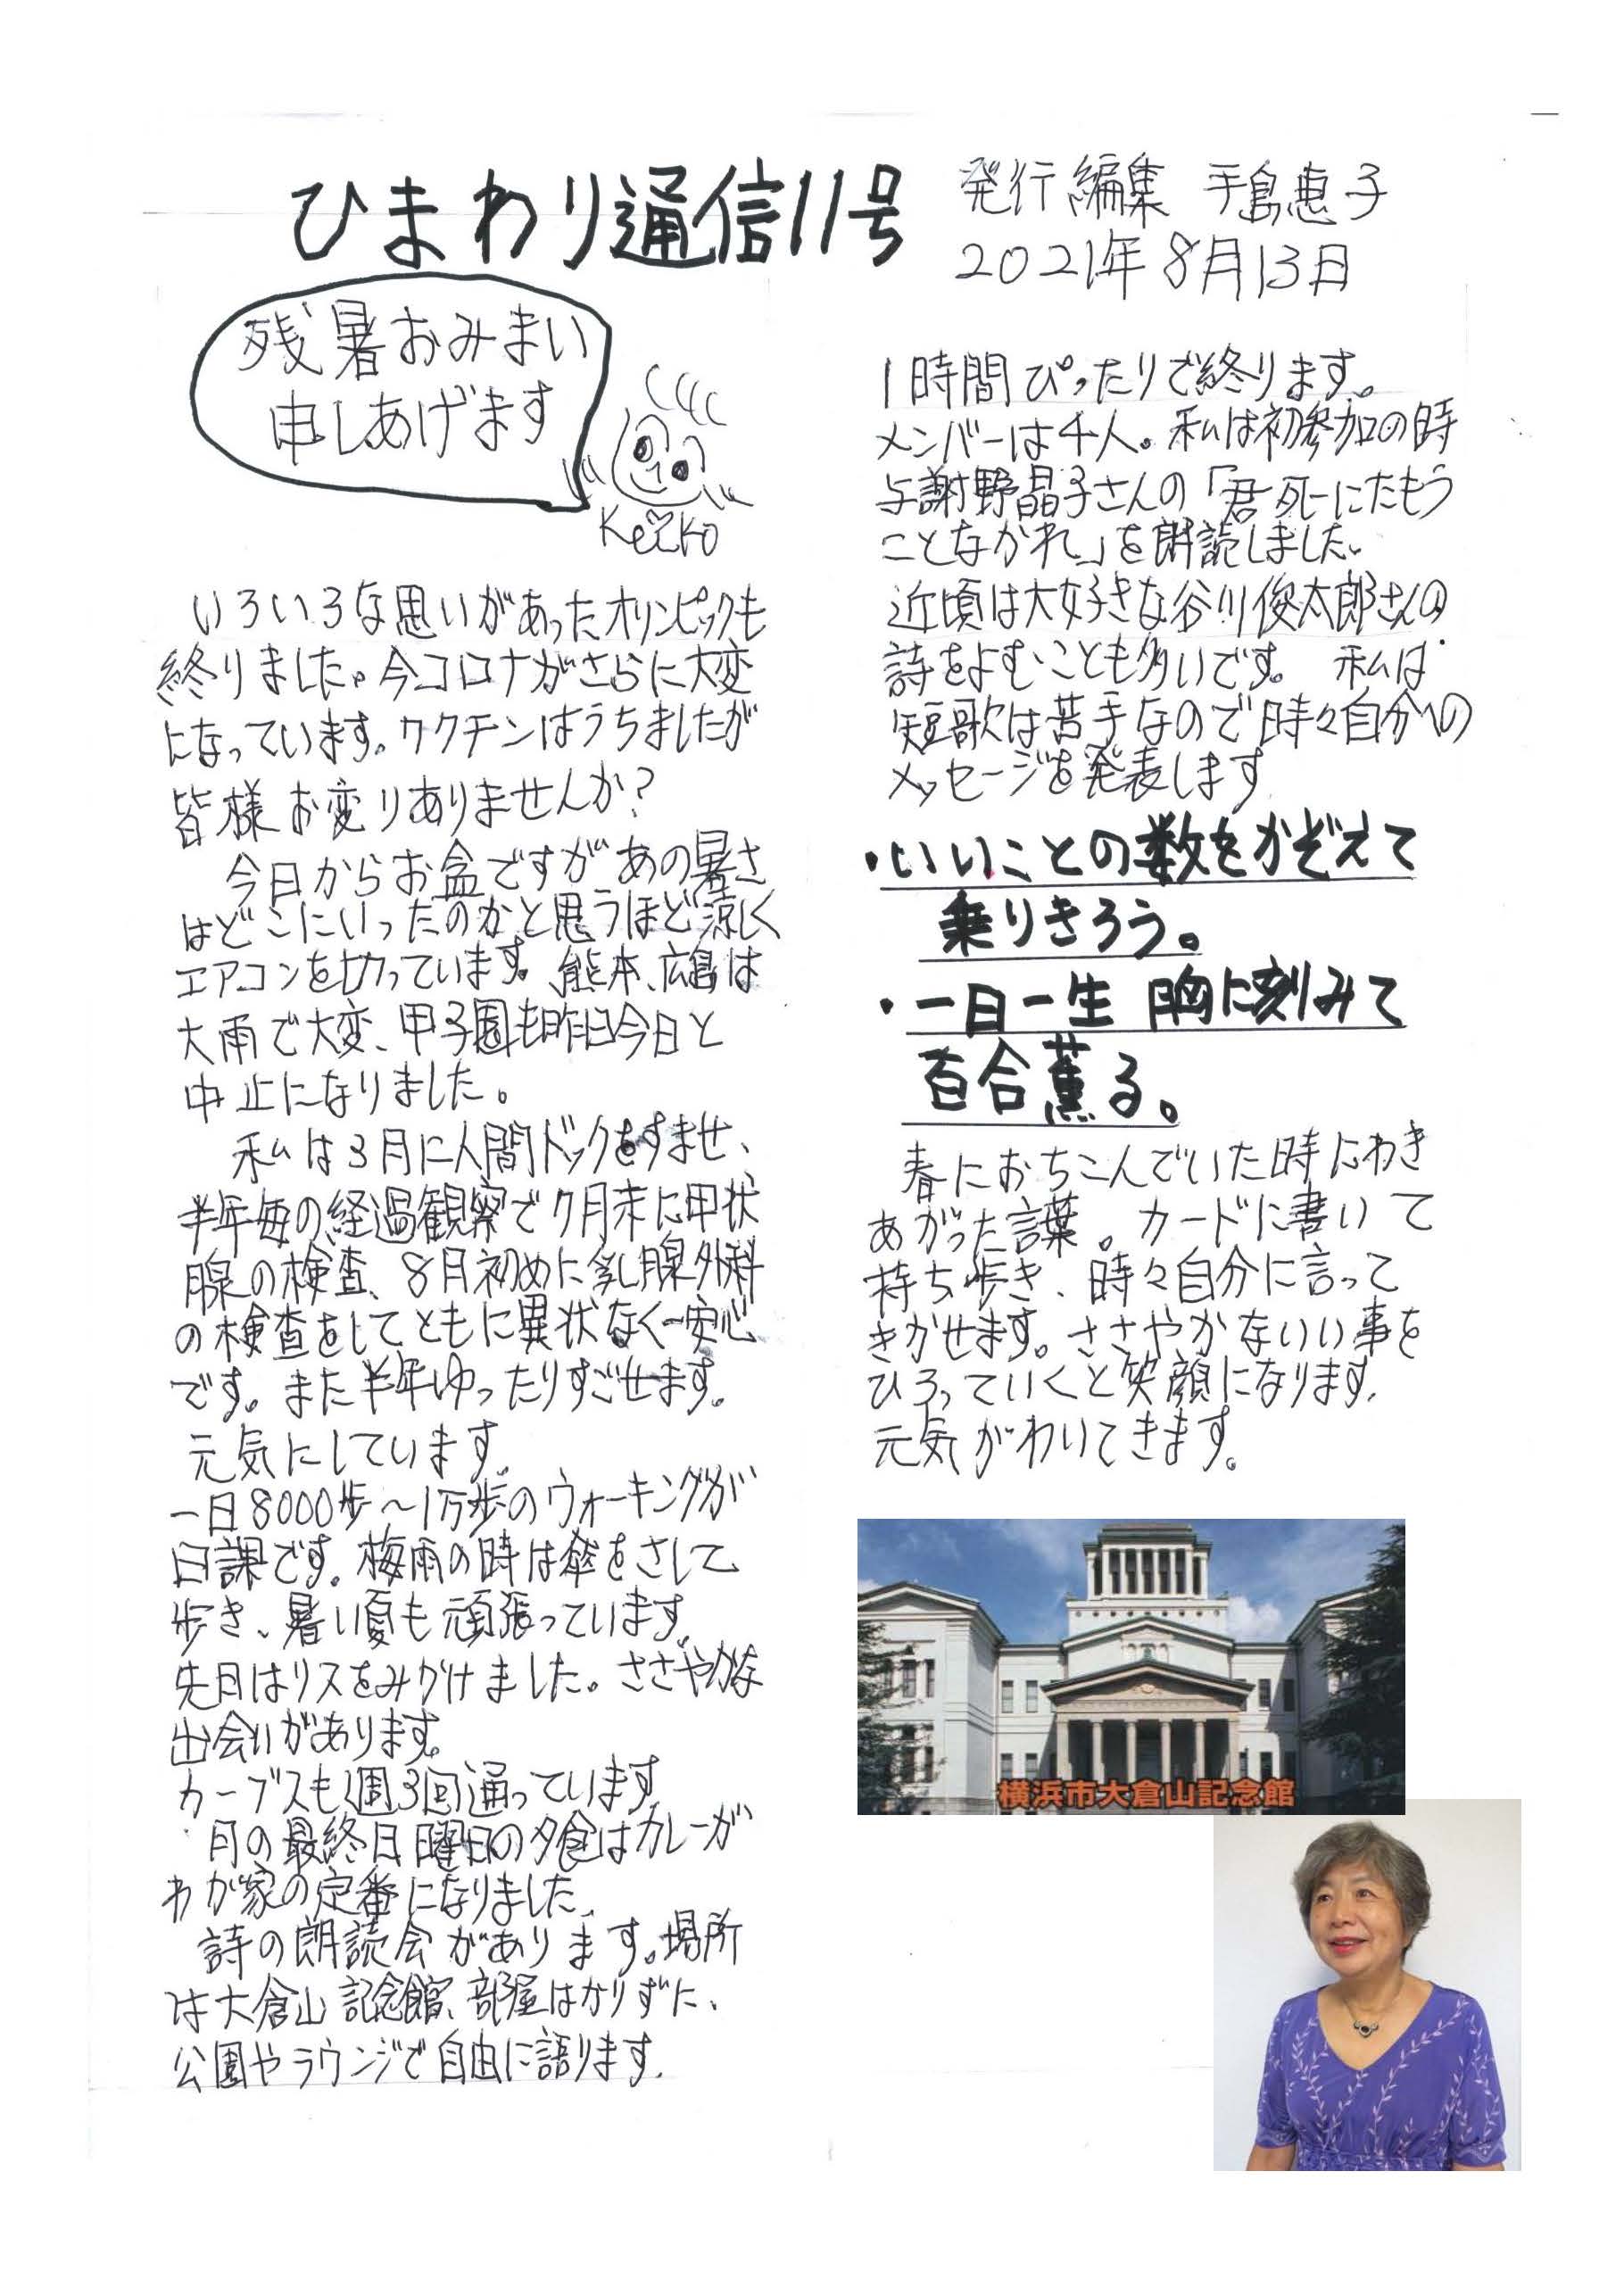 ひまわり通信11号
発行編集 手島恵子
2021年8月13日
残暑おみまい
申しあげます
Keiko
いろいろな思いがあったオリンピックも
終りました。今コロナがさらに大変
になっています。ワクチンはうちましたが
皆様お変りありませんか?
今日からお盆ですがあの暑さ
はどこにいったのかと思うほど涼しく
エアコンを切っています。熊本、広島は
大雨で大変、甲子園も昨日今日と
中止になりました。
私は3月に人間ドックをすませ、
半年毎の経過観察で7月末に甲状
腺の検査、8月初めに乳腺外科
の検査をしてともに異状なく一安心
です。また半年ゆったりすごせます。
元気にしています。
一日8000歩〜1万歩のウォーキングが
日課です。梅雨の時は傘をさして
歩き、暑い夏も頑張っています。
先月はリスをみかけました。ささやかな
出会いがあります。
カーブスも週3回通っています。
月の最終日曜日の夕食はカレーが
わが家の定番になりました。
詩の朗読会があります。場所
は大倉山記念館、部屋はかりずに、
公園やラウンジで自由に語ります。
1時間ぴったりで終ります。
メンバーは千人。私は初参加の時
与謝野晶子さんの「君死にたもう
ことなかれ」を朗読しました。
近頃は大好きな谷川俊太郎さんの
詩をよむことも多いです。 私は
短歌は苦手なので時々自分への
メッセージを発表します
・いいことの数をかぞえて
乗りきろう。
・一日一生 胸に刻みて
百合薫る。
春におちこんでいた時にわき
あがった言葉。カードに書いて
持ち歩き、時々自分に言って
きかせます。ささやかないい事を
ひろっていくと笑顔になります。
元気がわいてきます。
横浜市大倉山記念館